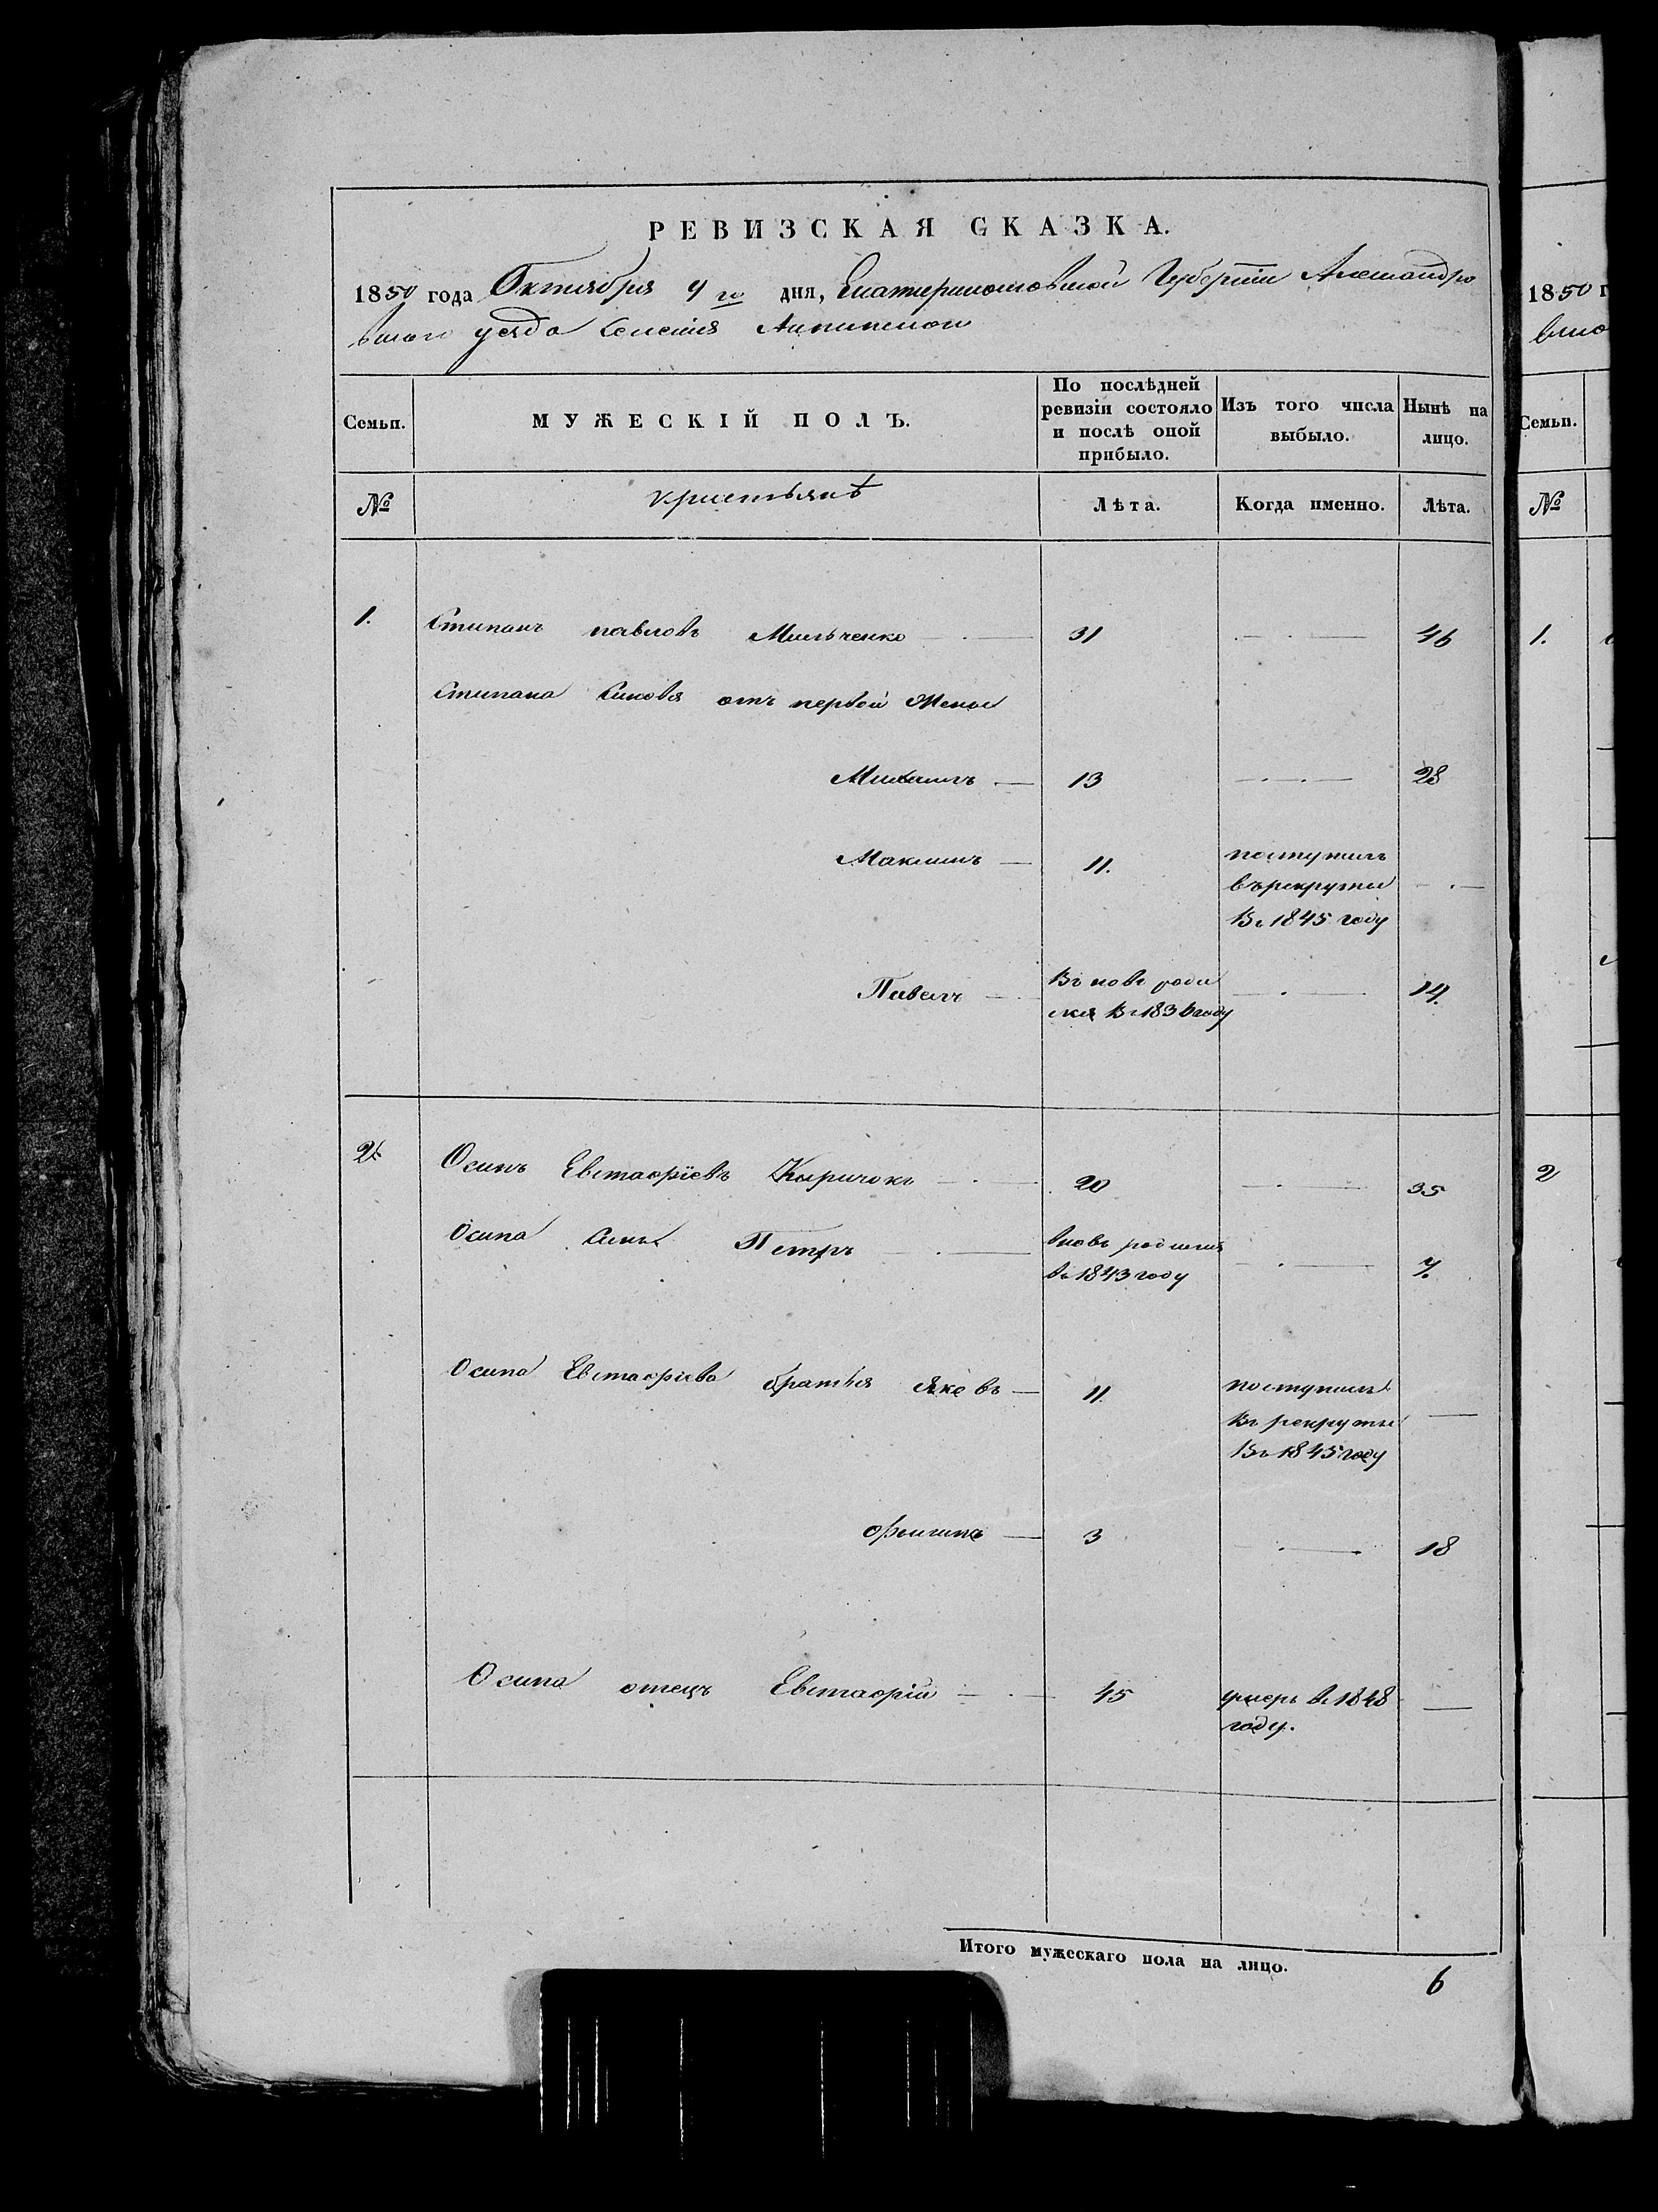 РЕВИЗСКАЯ СКАЗКА.
1850 года Октября 9 го дня, Екатеринославской Губернiи Александро
вскаго уезда селенiя
Семьи.
МУЖЕСКIЙ ПОЛЪ.
По послѣдней ревизiи состояло и послѣ оной прибыло.
Изъ того числа выбыло.
Нынѣ на лицо.
№
кристьянѣ
Лѣта.
Когда именно.
Лѣта.
1. Стипанъ павловъ Мильченко 31 46
Стипана Сыновя отъ первой Жены
Михаилъ 13 28
Максимъ 11. поступилъ
въ рекруты
Въ 1845 году
Павелъ Въ новь роди 14.
лся Въ 1836 году
2 Осипъ Евстафiевъ Кыричокъ 20 35
Осипа Сынъ Петръ вновь родился 7.
въ 1843 году
Осипа Евстафiева братья Яковъ 11. поступилъ
Въ рекруты
Въ 1845 году
3 18
Осипа отецъ Евстафiй 45 умеръ въ 1848
году.
Итого мужескаго пола на лицо.
6
1850 г
вско
Семьи.
№
1.
2